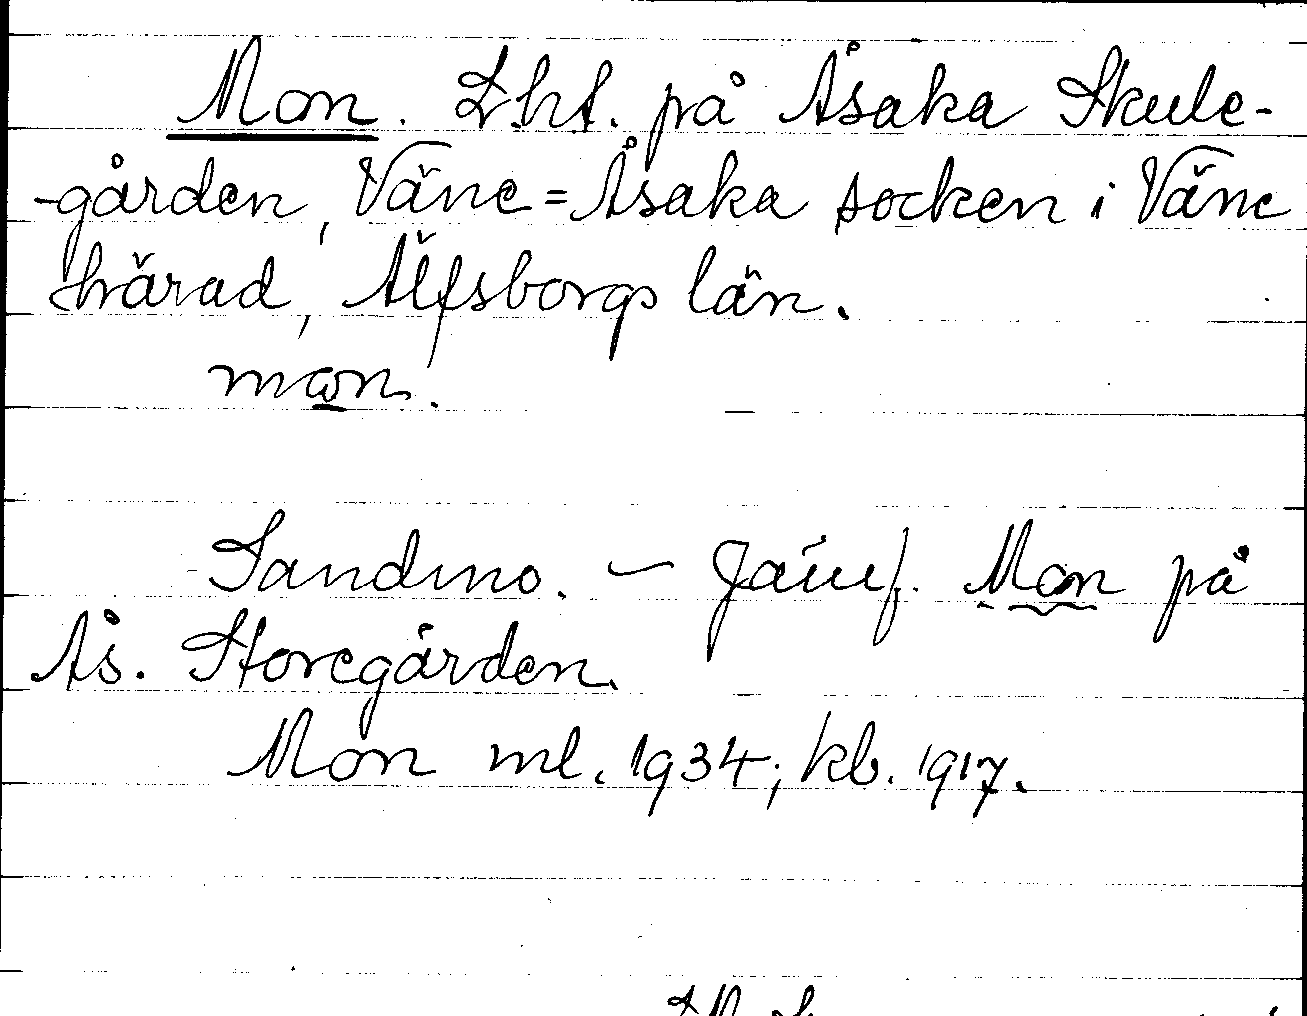 Mon. Lht. på Åsaka Skule-
-gården, Väne=Åsaka socken i Väne
härad, Älfsborgs län.
mon.
Sandmo. – Jämf. Mon på
Ås. Storegården.
Mon ml. 1934; kb. 1917.